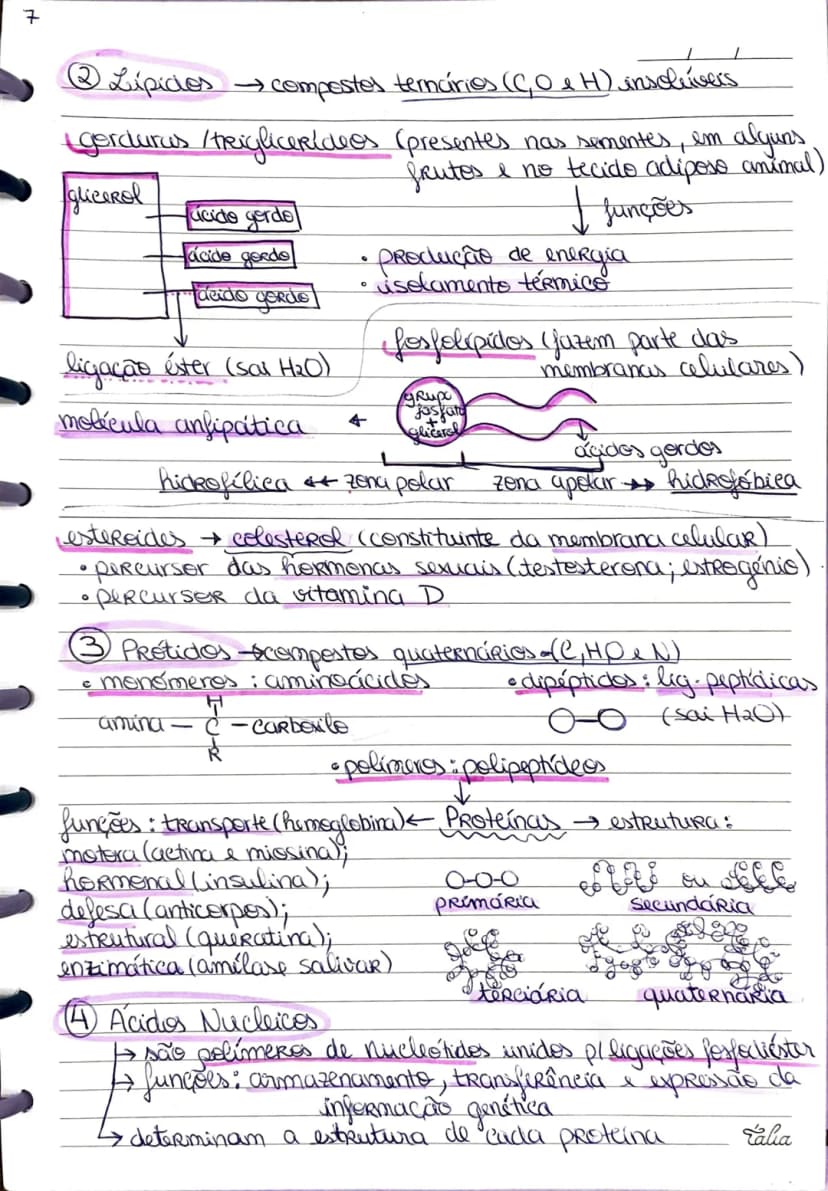 7
② Lípidos → compostos ternários (C, O e H) insolúveis
gorduras / triglicerídeos (presentes nas sementes, em alguns
frutos e no tecido adiposo animal)
glicerol
ácido gordo
ácido gordo
ácido gordo
funções
• produção de energia
• isolamento térmico
ligação éster (sai H2O)
fosfolípidos (fazem parte das
membranas celulares)
molécula anfipática ←
grupo
fosfato
+
glicerol
ácidos gordos
hidrofílica ↞ zona polar zona apolar ↠ hidrofóbica
esteroides → colesterol (constituinte da membrana celular)
• percursor das hormonas sexuais (testesterona; estrogénio)
• percursor da vitamina D
③ Prótidos → compostos quaternários (C, H O e N)
• monómeros : aminoácidos
• dipéptidos : lig. peptídicas
(sai H2O)
H
amina — C — carboxilo
R
• polímeros : polipeptídeos
funções : transporte (hemoglobina) ← Proteínas → estrutura :
motora (actina e miosina);
hormonal (insulina);
defesa (anticorpos);
estrutural (queratina);
enzimática (amílase salivar)
primária
ou
secundária
terciária
quaternária
④ Ácidos Nucleicos
→ são polímeros de nucleótidos unidos p/ ligações fosfodiéster
→ funções : armazenamento, transferência e expressão da
informação genética
→ determinam a estrutura de cada proteína
Tália